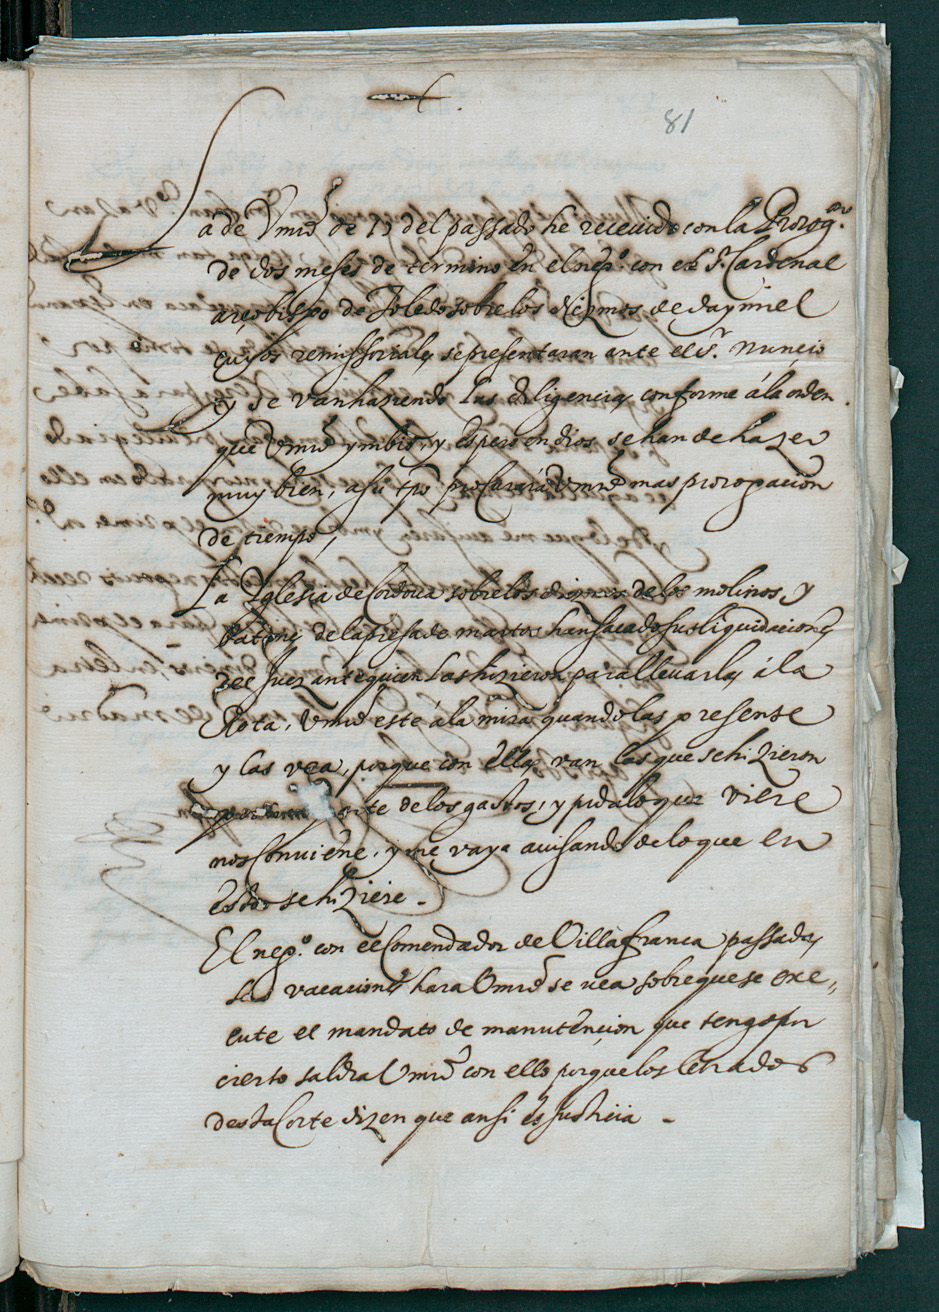 81
La de Vmd de 19 del passado he receuido con la Prorog.on
de dos meses de termino en el neg.o con el S.r Cardenal
arçobispo de Toledo sobre los diezmos de daymiel
cuyos remissoriales se presentaran ante el S.r Nuncio
y se van haziendo las diligencias conforme á la orden
que Vmd ymbió, y espero en dios se han de hazer
muy bien, a su tpo procurará Vmd mas prorogacion
de tiempo,
La Iglesia de Cordoua sobre los diezmos de los molinos, y
batanes de la presa de martos han sacado sus liquidaciones
del Juez ante quien las hizieron para lleuarlas á la
Rota, Vmd esté á la mira quando las presente
y las vea, porque con ellas van las que se hizieron
parte de los gastos, y pida lo que viere
nos conuiene, y me vaya auisando de lo que en
esto se hiziere.
El neg.o con el Comendador de Villafranca passadas
las vacaciones hara Vmd se vea sobre que se exe,,
cute el mandato de manutencion que tengo por
cierto saldra Vmd con ello porque los letrados
desta Corte dizen que ansi es justicia